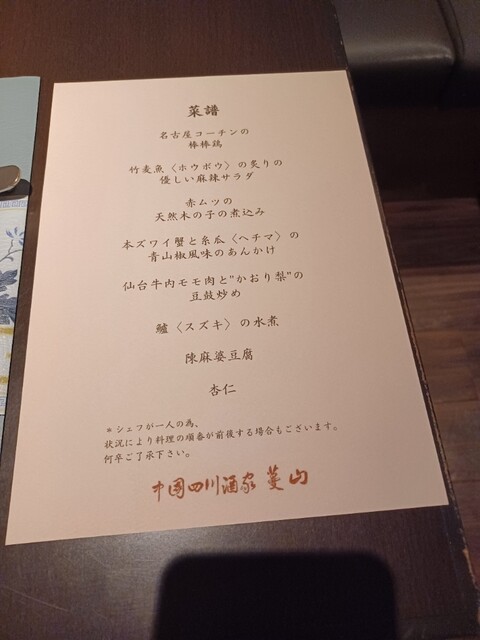 菜譜
名古屋コーチンの
棒棒鶏
竹麦魚〈ホウボウ〉の炙りの
優しい麻辣サラダ
赤ムツの
天然木の子の煮込み
本ズワイ蟹と糸瓜〈ヘチマ〉の
青山椒風味のあんかけ
仙台牛内モモ肉と"かおり梨"の
豆鼓炒め
鱸〈スズキ〉の水煮
陳麻婆豆腐
杏仁
＊シェフが一人の為、
状況により料理の順番が前後する場合もございます。
何卒ご了承下さい。
中国四川酒家 蔓山